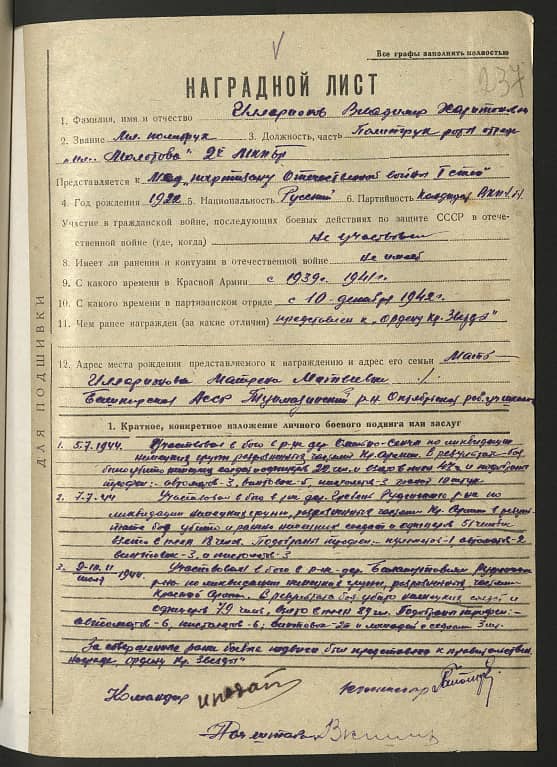 Все графы заполнить полностью
237
НАГРАДНОЙ ЛИСТ
1. Фамилия, имя и отчество Илларионов Владимир Харитонович
2. Звание Мл. политрук 3. Должность, часть Политрук роты отряда
"им. Молотова" 2й
Представляется к Мед. "партизану Отечественной войны I степ"
4. Год рождения 1922 5. Национальность Русский 6. Партийность Кандидат
Участие в гражданской войне, последующих боевых действиях по защите СССР в отече-
ственной войне (где, когда) Не участвовал
8. Имеет ли ранения и контузии в отечественной войне не имеет
9. С какого времени в Красной Армии с 1939г. 1941г.
10. С какого времени в партизанском отряде с 10 декабря 1942г.
11. Чем ранее награжден (за какие отличия) представлен к "Ордену Кр. Звезды"
12. Адрес места рождения представляемого к награждению и адрес его семьи Мать
Илларионова Матрена Матвеевна
Башкирская АССР Туймазинский р-н Октябрьский
ДЛЯ ПОДШИВКИ
1. Краткое, конкретное изложение личного боевого подвига или заслуг
1. 5.7.1944. Участвовал в бою в р-не дер. по ликвидации
немецких групп разрозненных частями Кр. Армии. В результате боя
было убито немецких солдат и офицеров 22 чел. и взято в плен 47 ч. и подобраны
трофеи:- автоматов-3, винтовок-5, пистолетов-3
2. 7.7.44 Участвовал в бою в р-не дер. Руденского р-на по
ликвидации немецких групп, разрозненных частями Кр. Армии в резуль-
тате боя убито и ранено немецких солдат и офицеров 51 человек
взято в плен 18 чел. Подобраны трофеи:- пулеметов-1, автоматов-2
винтовок-3, пистолетов-3
3. 9-10.11 Участвовал в бою в р-не дер. Руденского
июля 1944 р-на по ликвидации немецких групп, разрозненных частями
Красной Армии. В результате боя убито немецких солдат и
офицеров 79 чел., взято в плен 29 чел. Подобраны трофеи:-
автоматов-6, пистолетов-6; винтовок-20 и лошадей с седлами 3 шт.
За совершенные ранее боевые подвиги был представлен к правительствен.
награде ордену Кр. Звезды"
Командир Комиссар